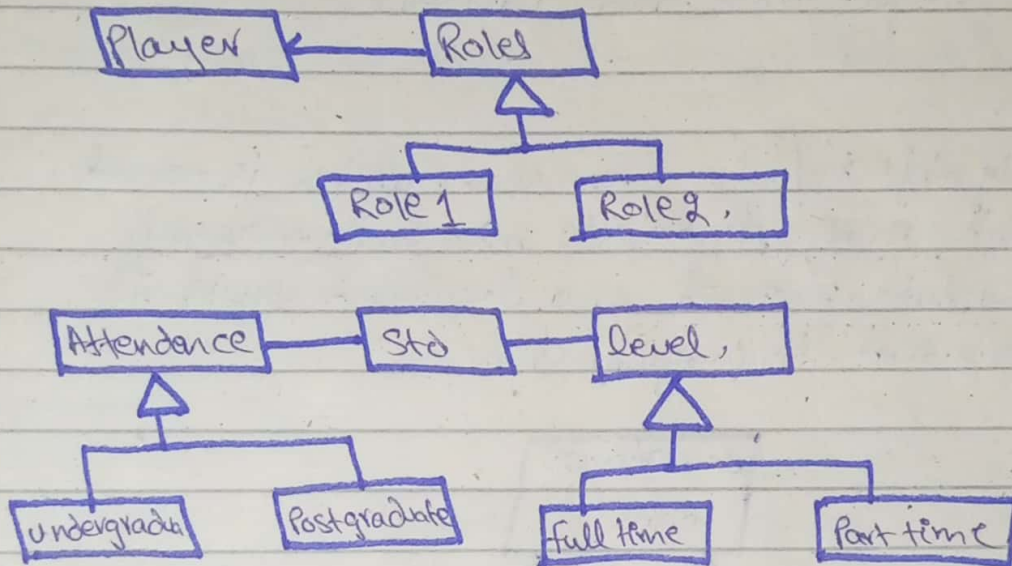 Player Roles
Role 1 Role 2.
Attendence Std level,
undergradua Postgraduate full time Part time